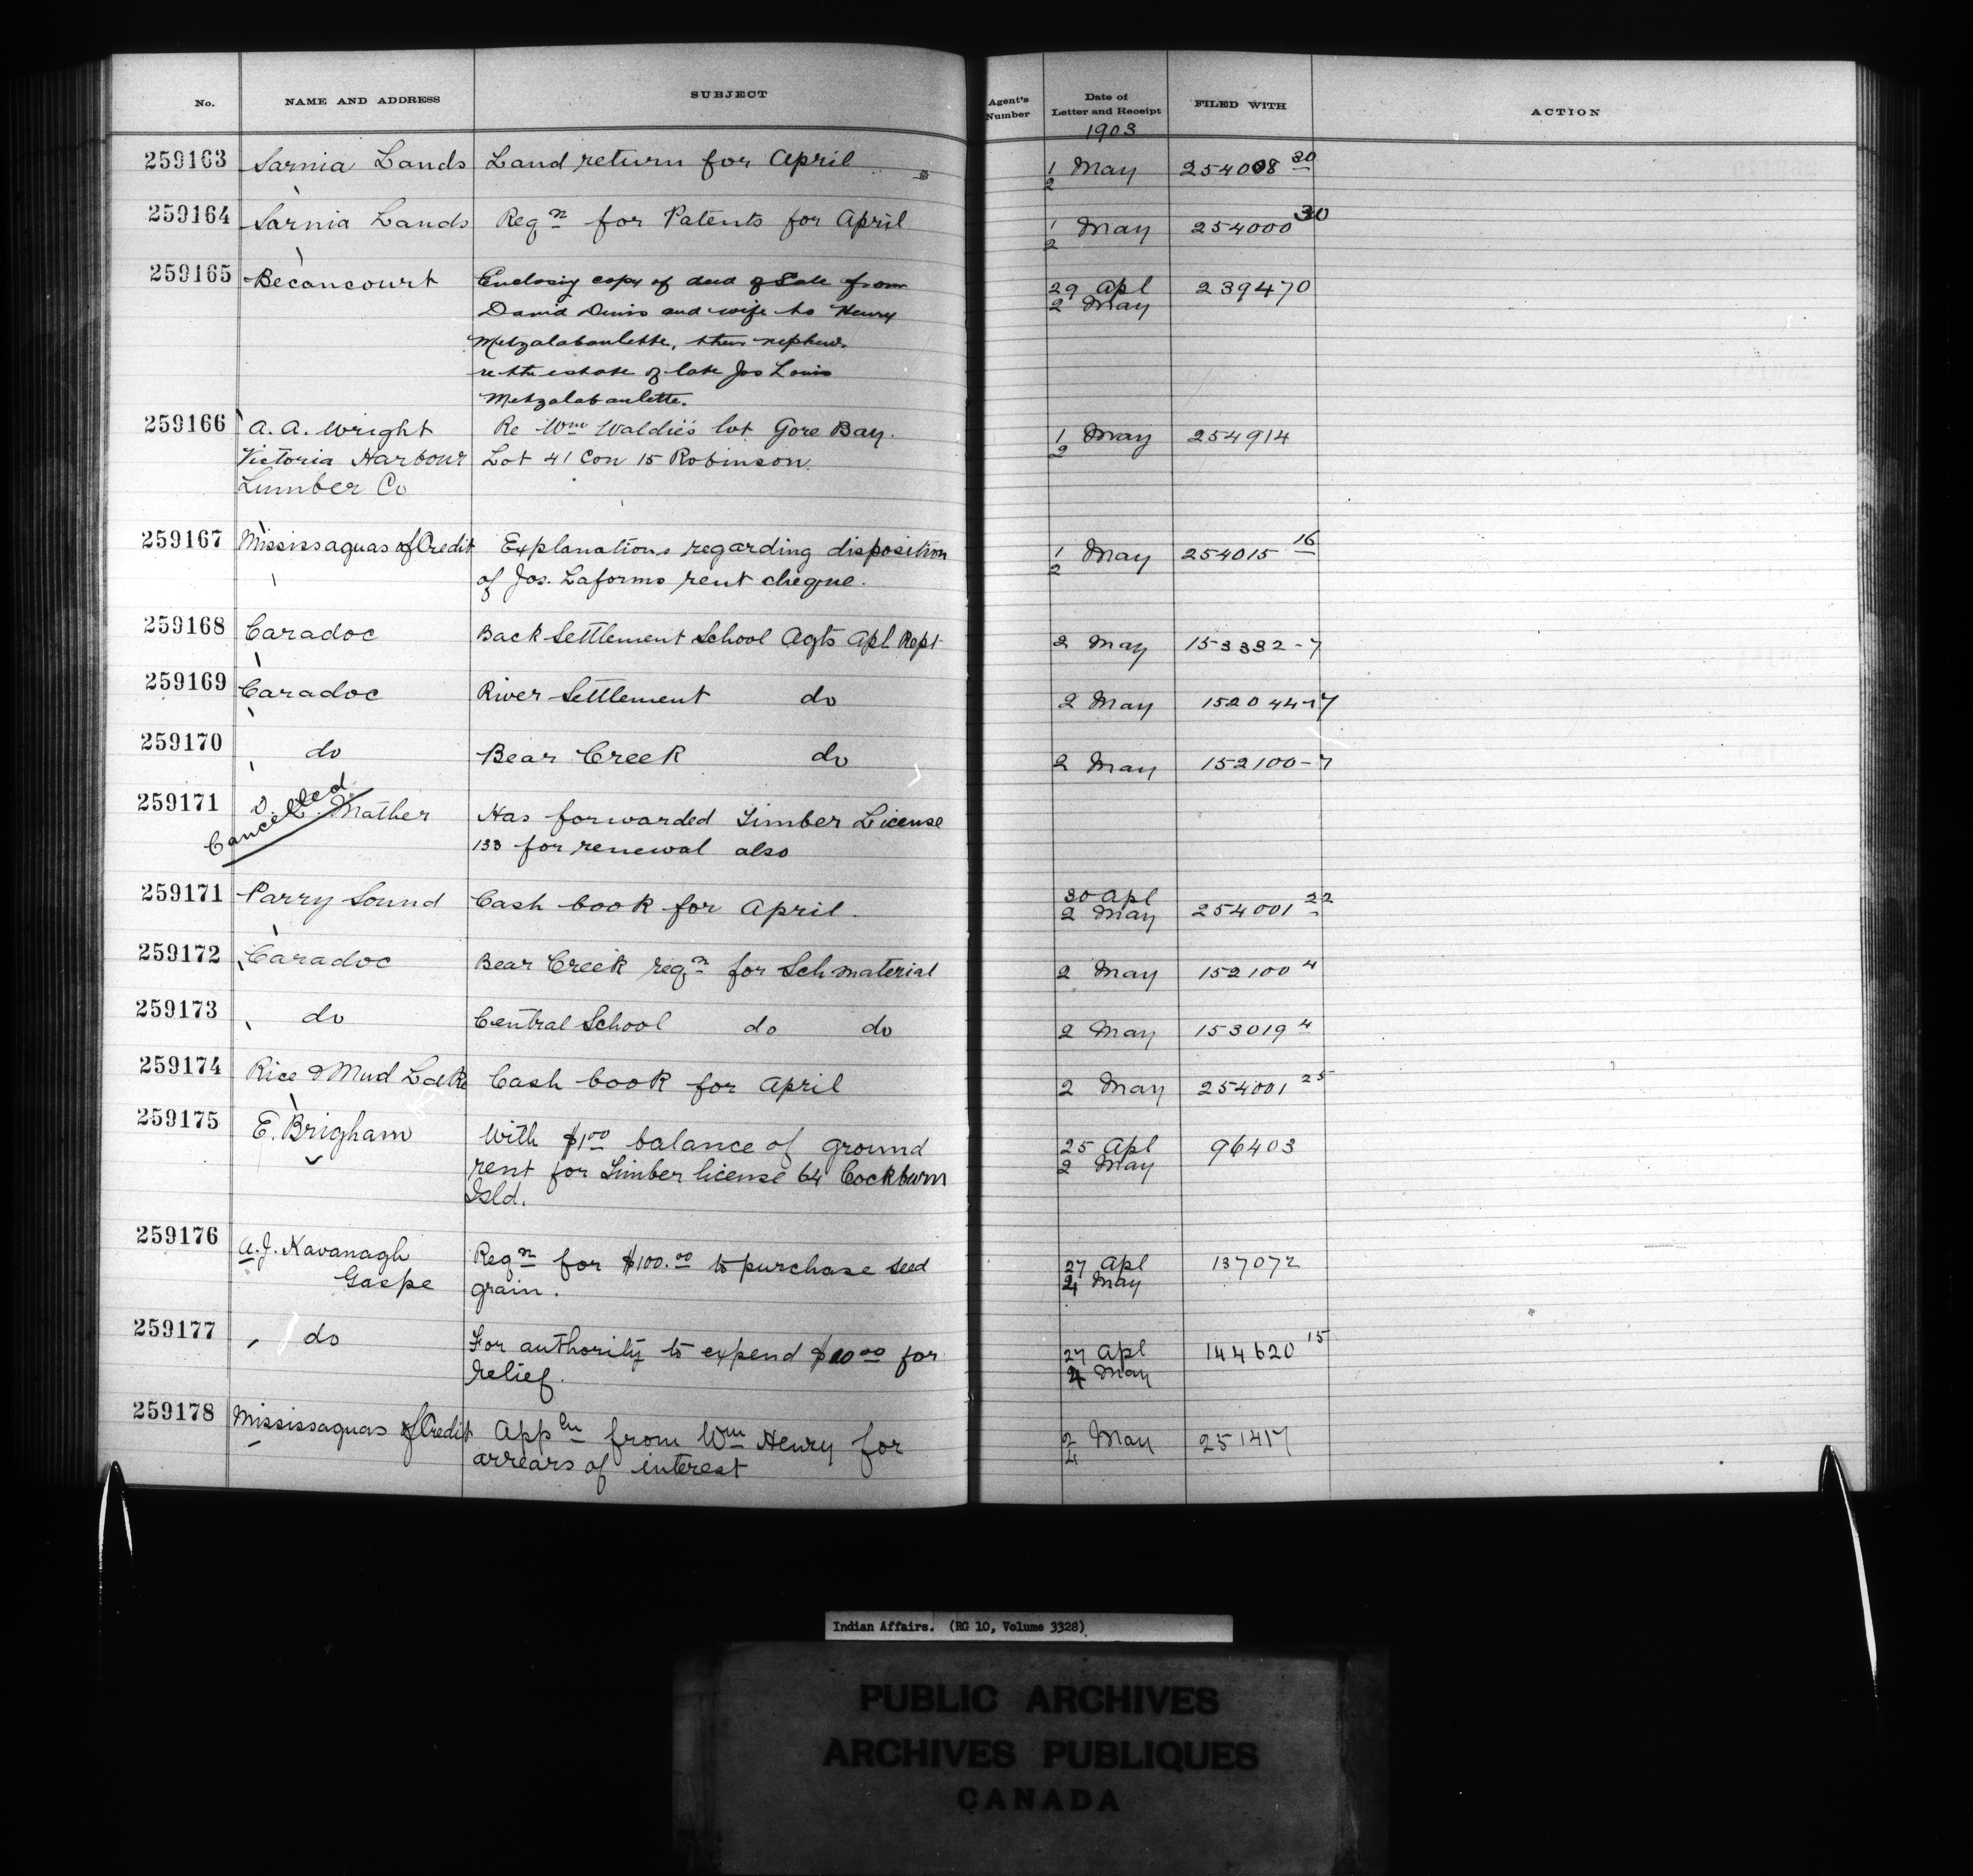 No. NAME AND ADDRESS SUBJECT Agent's Number Date of Letter and Receipt FILED WITH ACTION
1903
259163 Sarnia Lands Land return for April 1/2 May 254008 30
259164 Sarnia Lands Reqn for Patents for April 1/2 May 254000 30
259165 Becancourt Enclosing copy of deed of Sale from 29 Apl 239470
David Denis and wife to Henry 2 May
Metzalabanlette, their nephew.
re the estate of late Jos Louis
Metzalabanlette.
259166 A. A. Wright Re Wm Waldie's lot Gore Bay. 1/2 May 254914
Victoria Harbour Lot 41 Con 15 Robinson.
Lumber Co
259167 Mississaguas of Credit Explanations regarding disposition 1/2 May 254015 16
of Jos. Laforms rent cheque.
259168 Caradoc Back Settlement School Agts Apl Rept 2 May 153332-7
259169 Caradoc River Settlement do 2 May 152044-7
259170 do Bear Creek do 2 May 152100-7
259171 D. L. Mather Has forwarded Timber License
Cancelled 133 for renewal also
259171 Parry Sound Cash book for April. 30 Apl 254001 22
2 May
259172 Caradoc Bear Creek reqn for Sch material 2 May 152100 4
259173 do Central School do do 2 May 153019 4
259174 Rice & Mud Lake Cash book for April 2 May 254001 25
259175 E. Brigham With $1.00 balance of ground 25 Apl 96403
rent for Timber license 64 Cockburn 2 May
Isld.
259176 A. J. Kavanagh Reqn for $100.00 to purchase seed 27 Apl 137072
Gaspe grain. 4 May
259177 do For authority to expend $10.00 for 27 Apl 144620 15
relief. 4 May
259178 Mississaguas of Credit Appln from Wm Henry for 2/4 May 251417
arrears of interest
Indian Affairs. (RG 10, Volume 3328)
PUBLIC ARCHIVES
ARCHIVES PUBLIQUES
CANADA